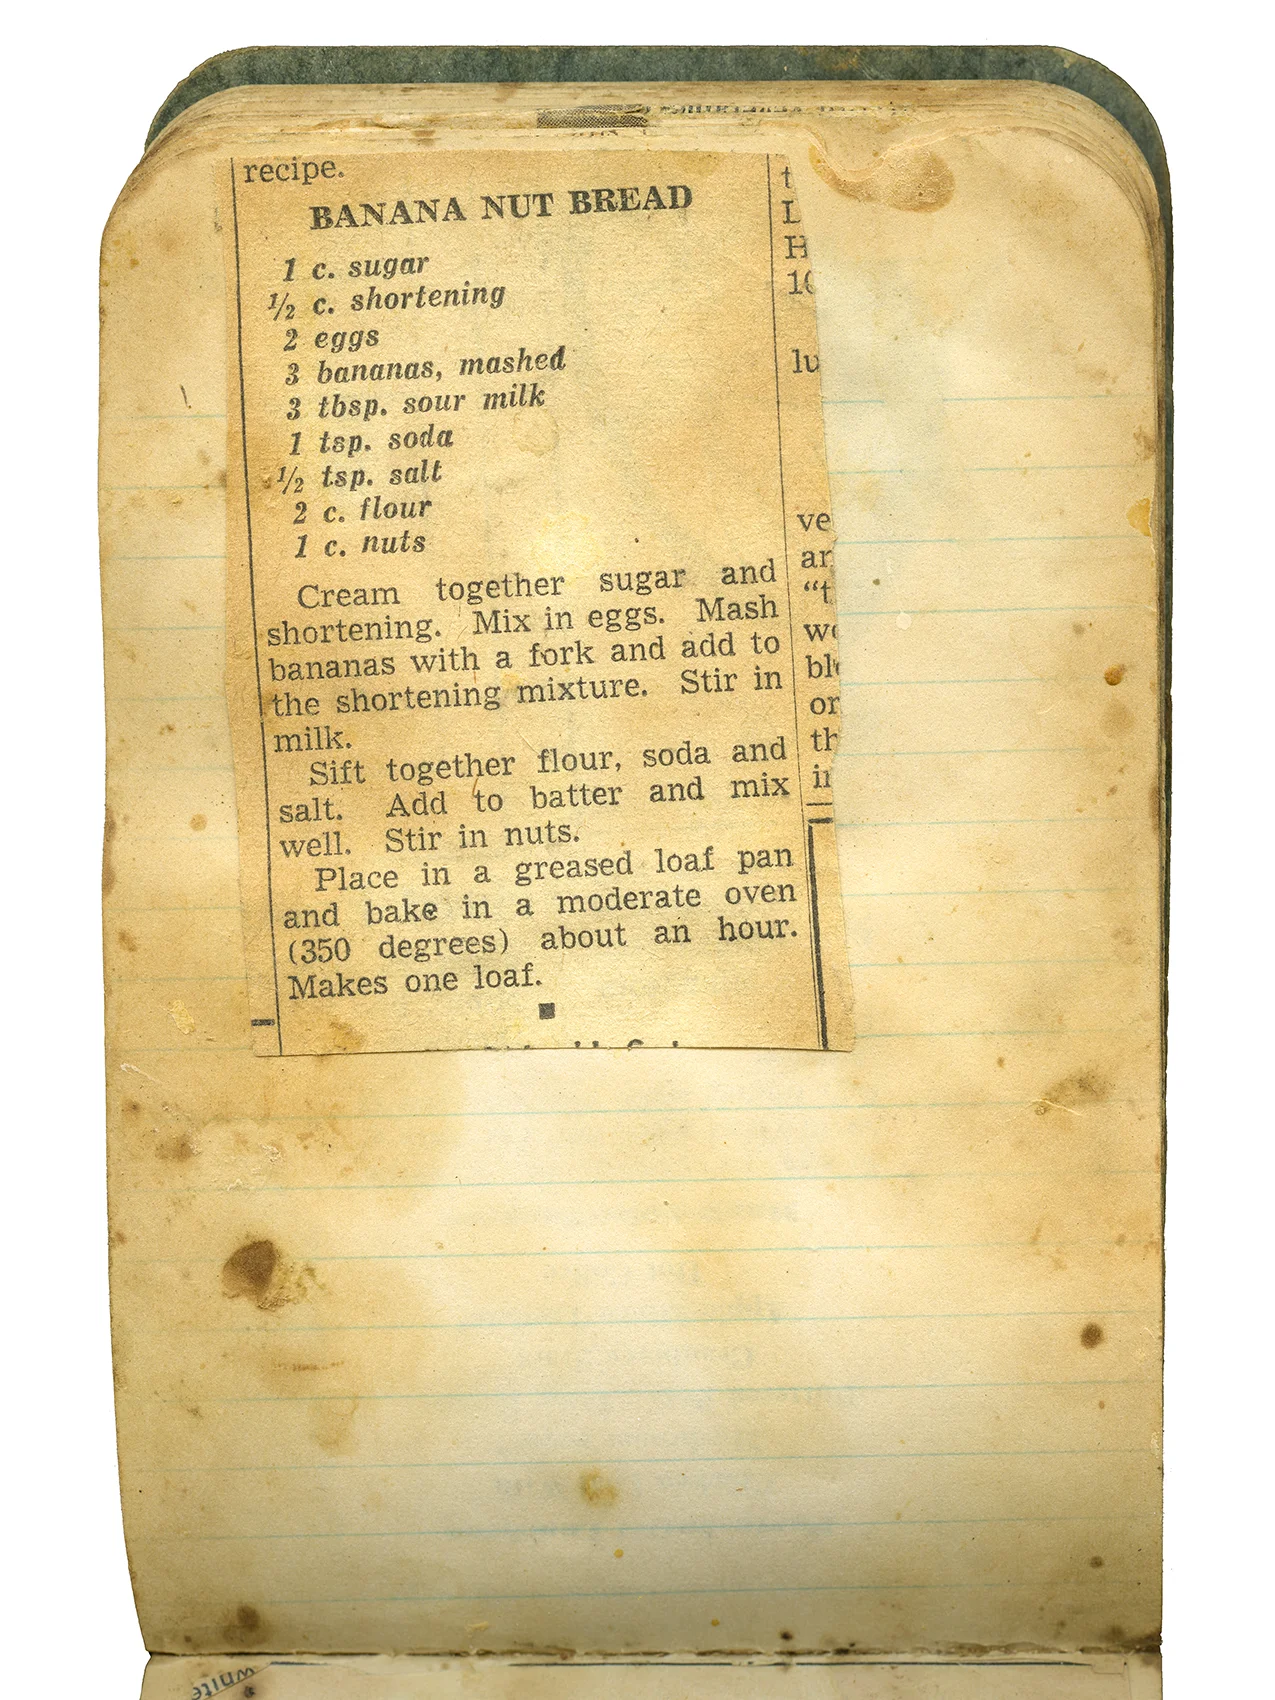 recipe.
BANANA NUT BREAD
1 c. sugar
½ c. shortening
2 eggs
3 bananas, mashed
3 tbsp. sour milk
1 tsp. soda
½ tsp. salt
2 c. flour
1 c. nuts
Cream together sugar and
shortening. Mix in eggs. Mash
bananas with a fork and add to
the shortening mixture. Stir in
milk.
Sift together flour, soda and
salt. Add to batter and mix
well. Stir in nuts.
Place in a greased loaf pan
and bake in a moderate oven
(350 degrees) about an hour.
Makes one loaf.
t
L
H
10
lu
ve
ar
“t
wo
blo
or
th
in
white